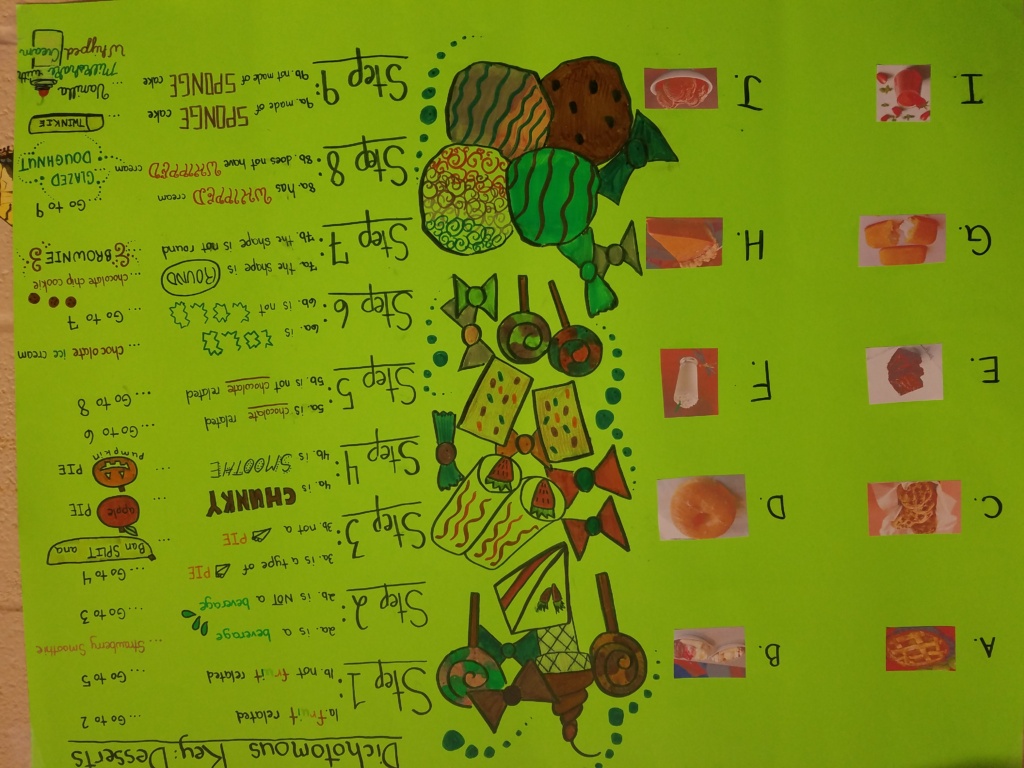 Dichotomous Key: Desserts
Step 1:
1a. fruit related ... Go to 2
1b. not fruit related ... Go to 5
Step 2:
2a. is a beverage ... Strawberry Smoothie
2b. is NOT a beverage ... Go to 3
Step 3:
3a. is a type of PIE ... Go to 4
3b. not a PIE ... Ban SPLIT ana
Step 4:
4a. is CHUNKY ... apple PIE
4b. is SMOOTHE ... pumpkin PIE
Step 5:
5a. is chocolate related ... Go to 6
5b. is not chocolate related ... Go to 8
Step 6:
6a. is ... chocolate ice cream
6b. is not ... Go to 7
Step 7:
7a. the shape is ROUND ... chocolate chip cookie
7b. the shape is not round ... BROWNIE
Step 8:
8a. has WHIPPED cream ... Go to 9
8b. does not have WHIPPED cream GLAZED DOUGHNUT
Step 9:
9a. made of SPONGE cake ... TWINKIE
9b. not made of SPONGE cake ... Vanilla
Milkshake with
Whypped Cream
A.
B.
C.
D.
E.
F.
G.
H.
I.
J.